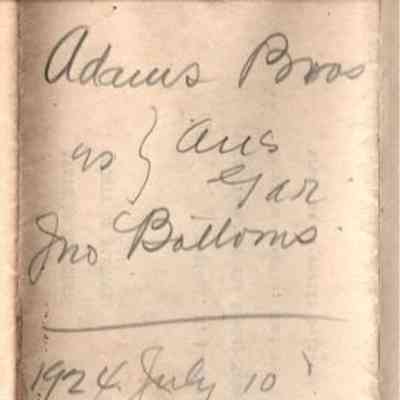 Adams Bros
vs } Ans
Gar.
Jno Bottoms.
1924 July 10